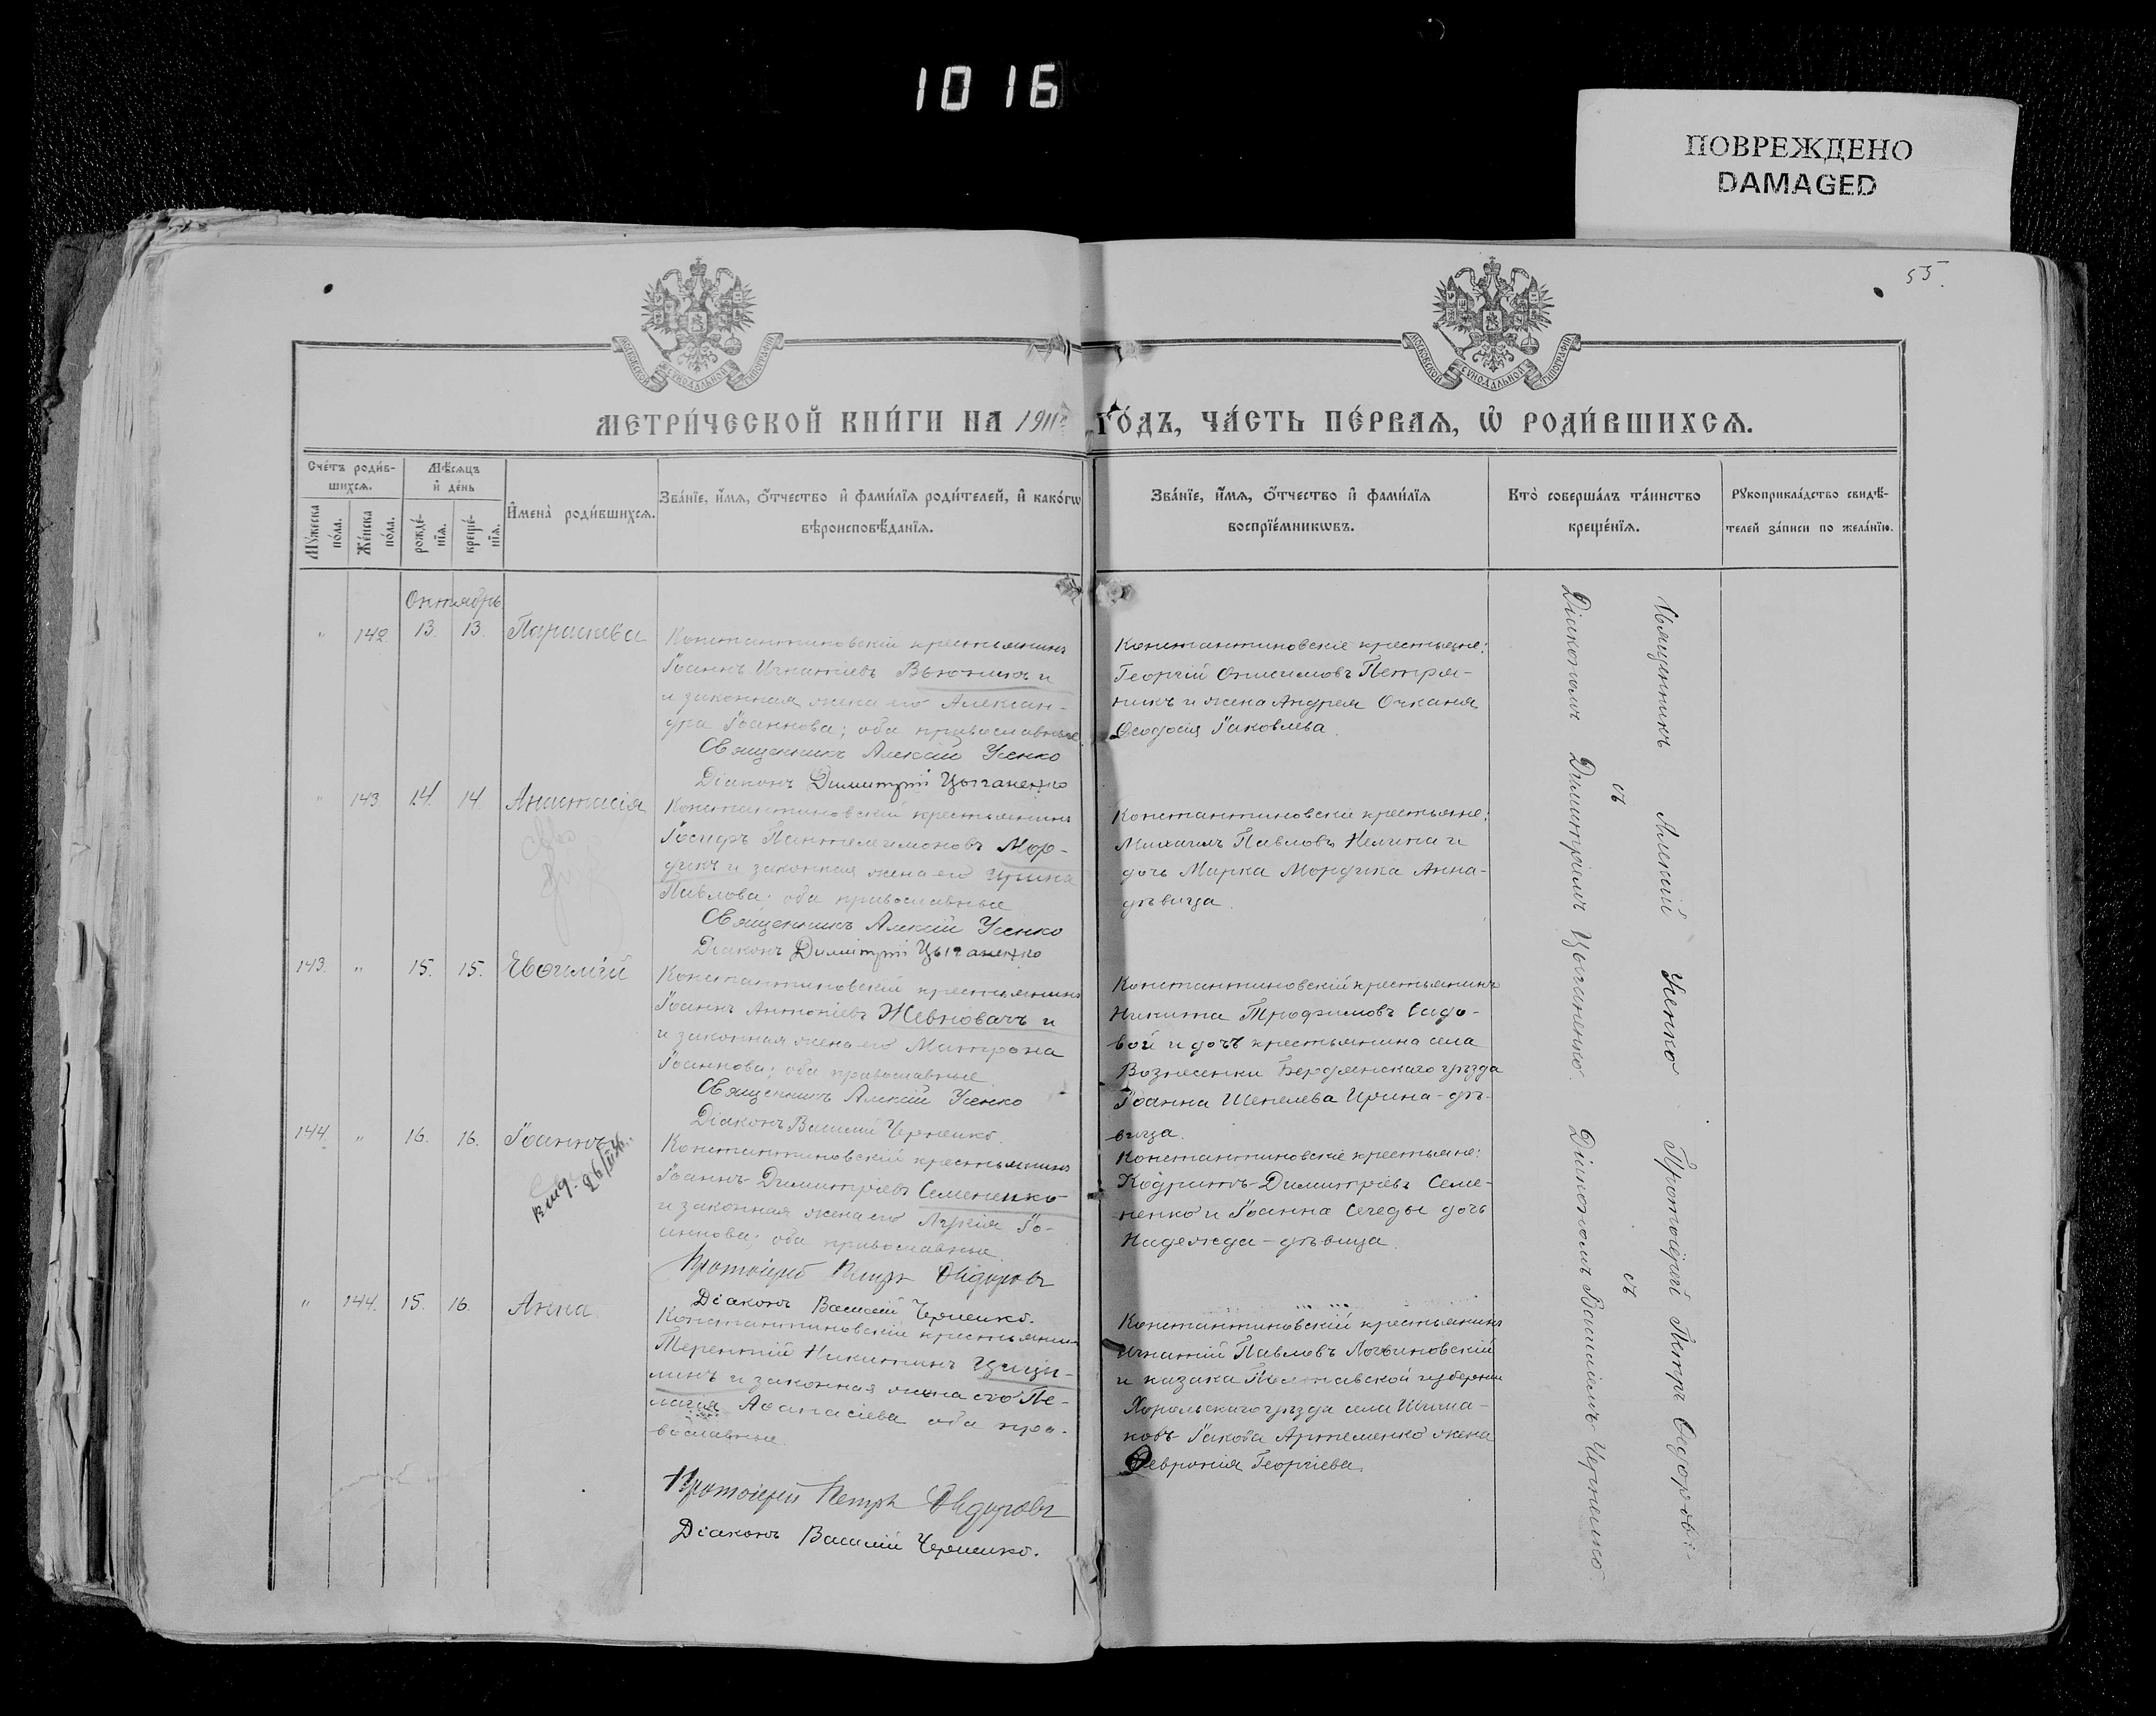 10 16
ПОВРЕЖДЕНО
DAMAGED
55.
МОСКОВСКОЙ СѴНОДАЛЬНОЙ ТИПОГРАФІИ
МОСКОВСКОЙ СѴНОДАЛЬНОЙ ТИПОГРАФІИ
МЕТРИ́ЧЕСКОЙ КНИ́ГИ НА 1911 ГО́ДЪ, ЧА́СТЬ ПЕ́РВАѦ, Ѡ҆ РОДИ́ВШИХСѦ.
Сче́тъ роди́в-
шихсѧ.
Мꙋ́жеска
по́ла.
Же́нска
по́ла.
Мѣ́сѧцъ
и҆ де́нь
рожде́-
нїѧ.
креще́-
нїѧ.
И҆мена̀ роди́вшихсѧ.
Зва́нїе, и҆́мѧ, ѻ҆́тчество и҆ фами́лїѧ роди́телей, и҆ како́гѡ
вѣроисповѣ́данїѧ.
Зва́нїе, и҆́мѧ, ѻ҆́тчество и҆ фами́лїѧ
воспрїе́мникѡвъ.
Кто̀ соверша́лъ та́инство
креще́нїѧ.
Рꙋкоприкла́дство свидѣ́-
телей за́писи по жела́нїю.
Октябрь
" 142 13. 13. Параскева
Константиновскій крестьянинъ
Іоаннъ Игнатіевъ Вьюникъ и
и законная жена его Алексан-
дра Іоаннова; оба православные.
Священникъ Алексій Усенко
Діаконъ Димитрій Цыганенко
Константиновскіе крестьяне:
Георгій Онисимовъ Петря-
никъ и жена Андрея Очканя
Ѳеодосія Іаковлева.
" 143. 14. 14. Анастасія
Константиновскій крестьянинъ
Іосифъ Пантелеимоновъ Мор-
дикъ и законная жена его Ирина
Павлова; оба православные
Священникъ Алексій Усенко
Діаконъ Димитрій Цыганенко
Константиновскіе крестьяне:
Михаилъ Павловъ Нелина и
дочь Марка Мордика Анна-
дѣвица.
143. " 15. 15. Евѳимій
Константиновскій крестьянинъ
Іоаннъ Антоніевъ Жевновачъ и
и законная жена его Матрона
Іоаннова; оба православные.
Священникъ Алексій Усенко
Діаконъ Василій Черненко.
Константиновскій крестьянинъ
Никита Трофимовъ Садо-
вой и дочь крестьянина села
Вознесенки Бердянскаго уѣзда
Іоанна Шепелева Ирина-дѣ-
вица.
144. " 16. 16. Іоаннъ
выд.
Константиновскій крестьянинъ
Іоаннъ Димитріевъ Семененко
и законная жена его Лукія Іо-
аннова; оба православные.
Протоіерей Петръ Ѳедоровъ
Діаконъ Василій Черненко.
Константиновскіе крестьяне:
Кодратъ Димитріевъ Семе-
ненко и Іоанна Сегеды дочь
Надежда-дѣвица.
" 144. 15. 16. Анна
Константиновскій крестьянинъ
Терентій Никитинъ
и законная жена его Пе-
лагія Аѳанасіева оба пра-
вославные.
Протоіерей Петръ Ѳедоровъ
Діаконъ Василій Черненко.
Константиновскій крестьянинъ
Игнатій Павловъ Логвиновскій
и казака Полтавской губерніи
Хорольскаго уѣзда села Шиша-
ковъ Іакова Артеменко жена
Февронія Георгіева.
Священникъ Алексій Усенко
съ
Діакономъ Димитріемъ Цыганенко.
Протоіерей Петръ Ѳедоровъ
съ
Діакономъ Василіемъ Черненко.